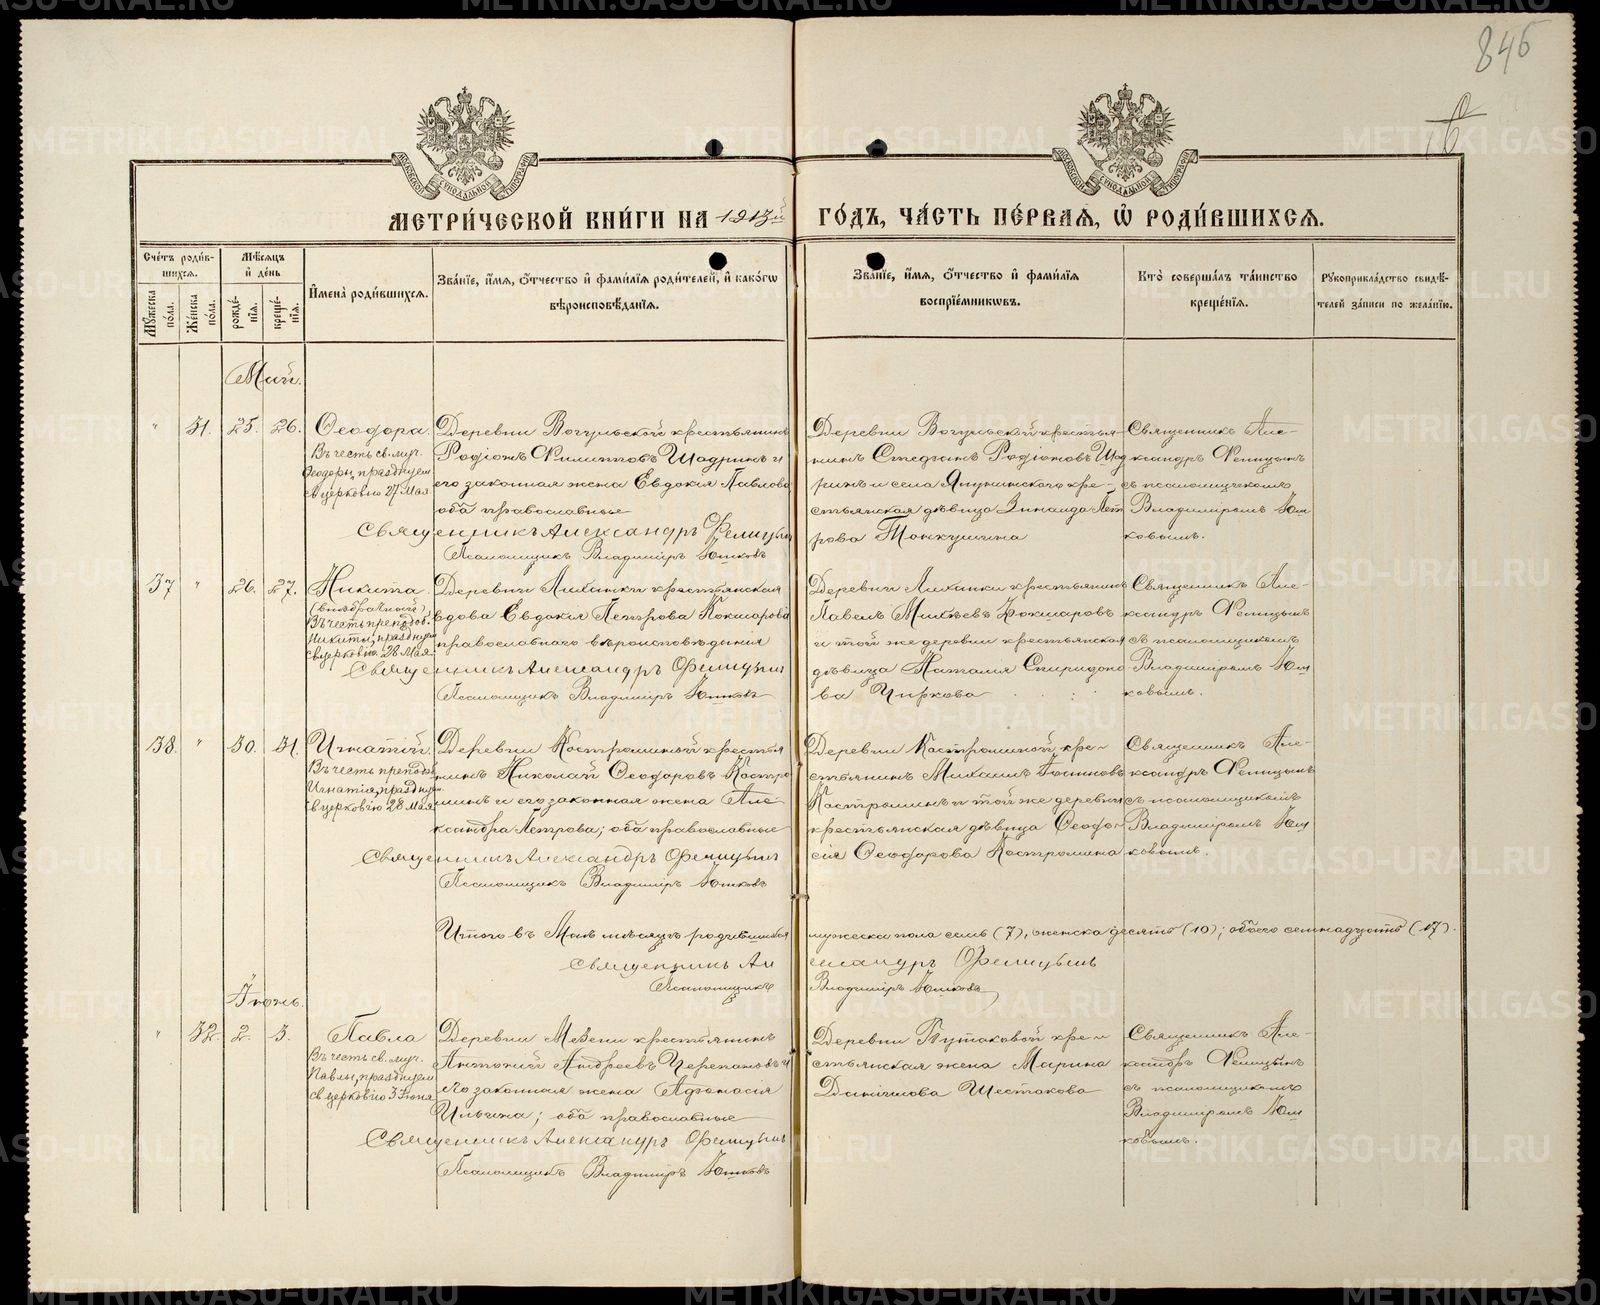 846
МЕТРИ́ЧЕСКОЙ КНИ́ГИ НА 1913й ГО́ДЪ, ЧА́СТЬ ПЕ́РВАЯ, Ѡ РОДИ́ВШИХСЯ.
Сче́тъ роди́в-
шихся.
Мѣ́сяцъ
и де́нь
Мꙋ́жеска по́ла.
Же́нска по́ла.
рожде́-
нія.
креще́-
нія.
И҆мена̀ роди́вшихся.
Зва́нїе, и҆́мя, ѻ҆́тчество и҆ фами́лїя роди́телей, и҆ како́гѡ
вѣроисповѣ́данїя.
Зва́нїе, и҆́мя, ѻ҆́тчество и҆ фами́лїя
воспрїе́мниковъ.
Кто̀ соверша́лъ та́инство
креще́нїя.
Рꙋкоприкла́дство свидѣ́-
телей за́писи по жела́нїю.
Май.
" 31. 25. 26.
Ѳеодора.
Въ честь св. муч.
Ѳеодоры, празднуем.
св. церковію 27 Мая
Деревни Вогульской крестьянинъ
Родіонъ Филиповъ Шадринъ и
его законная жена Евдокія Павлова
оба православные
Священникъ Александръ Фелицынъ
Псаломщикъ Владиміръ Юшковъ
Деревни Вогульской крестья-
нинъ Стефанъ Родіоновъ Шад
ринъ и села Япунинского кре-
стьянская дѣвица Зинаида Пет
рова Тонкушина
Священникъ Але-
ксандръ Фелицынъ
съ псаломщикомъ
Владиміромъ Юш
ковымъ.
37 " 26. 27.
Никита.
(внѣбрачный)
Въ честь преподоб.
Никиты, празднуем
св. церковію 28 Мая.
Деревни Ляханки крестьянская
вдова Евдокія Петрова Кокшарова
православнаго вѣроисповѣданія
Священникъ Александръ Фелицынъ
Псаломщикъ Владиміръ Юшковъ
Деревни Ляханки крестьянинъ
Павелъ Михѣевъ Кокшаровъ
и той же деревни крестьянская
дѣвица Наталія Спиридоно
ва Чиркова
Священникъ Але-
ксандръ Фелицынъ
съ псаломщикомъ
Владиміромъ Юш
ковымъ.
38. " 30. 31.
Игнатій.
Въ честь преподоб
Игнатія, празднуем.
св. церковію 28 Мая
Деревни Костроминой крестья
нинъ Николай Ѳеодоровъ Костро
минъ и его законная жена Але
ксандра Петрова; оба православные
Священникъ Александръ Фелицынъ
Псаломщикъ Владиміръ Юшковъ
Деревни Костроминой кре-
стьянинъ Михаилъ Іоанновъ
Костроминъ и той же деревни
крестьянская дѣвица Ѳеодо-
сія Ѳеодорова Костромина
Священникъ Але-
ксандръ Фелицынъ
съ псаломщикомъ
Владиміромъ Юш
ковымъ.
Итого въ Маѣ мѣсяцѣ родившихся мужеска пола семь (7), женска десять (10); обоего семнадцать (17).
Священникъ Александръ Фелицынъ
Псаломщикъ Владиміръ Юшковъ
Іюнь.
" 32. 2. 3.
Павла
Въ честь св. муч.
Павлы, празднуем
св. церковію 3 Іюня
Деревни Мезени крестьянинъ
Антоній Андреевъ Черепановъ и
его законная жена Афанасія
Ильина; оба православные
Священникъ Александръ Фелицынъ
Псаломщикъ Владиміръ Юшковъ
Деревни Бутаковой кре-
стьянская жена Марина
Даніилова Шестакова
Священникъ Але-
ксандръ Фелицынъ
съ псаломщикомъ
Владиміромъ Юш
ковымъ.
METRIKI.GASO-URAL.RU